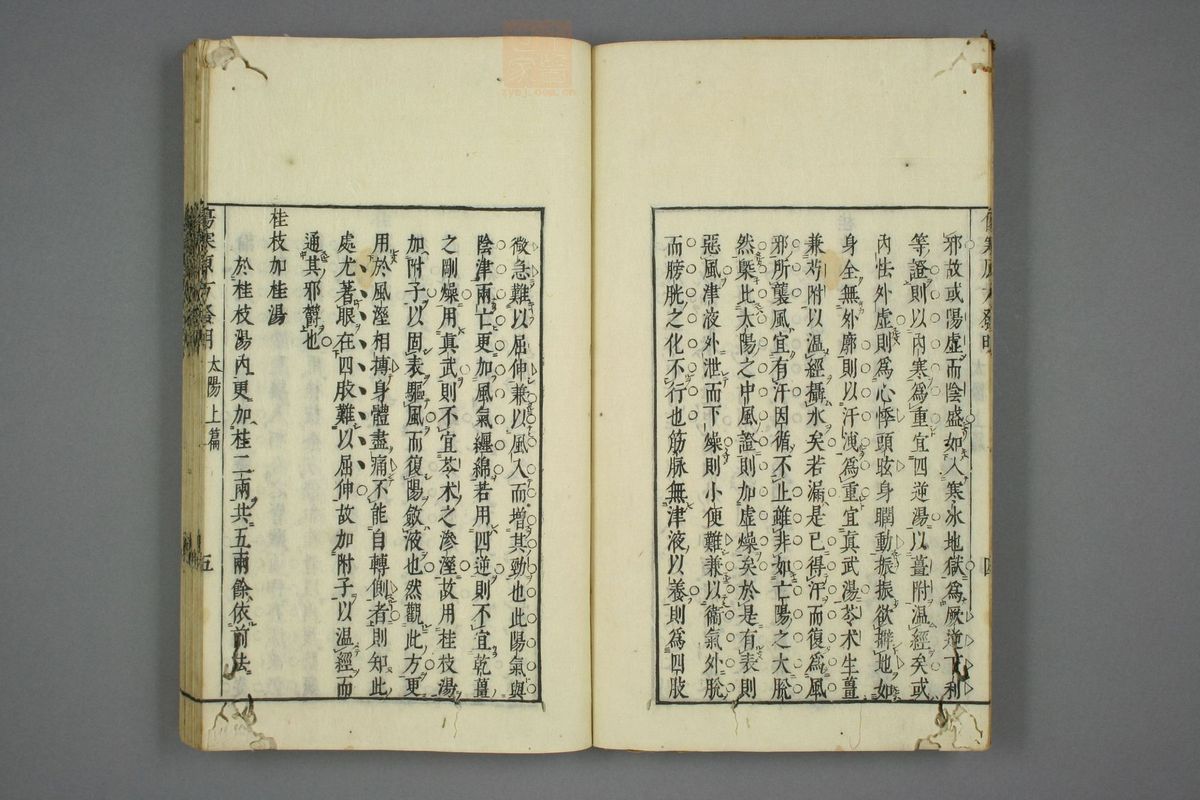 邪故或陽虛而陰盛如入寒冰地獄爲厥逆下利
等證則以內寒爲重宜四逆湯以薑附溫經矣或
內怯外虛則爲心悸頭眩身瞤動振振欲擗地如
身全無外廓則以汗洩爲重宜真武湯苓朮生薑
兼芍附以溫經攝水矣若漏是已得汗而復爲風
邪所襲風宜有汗因循不止雖非如亡陽之大脫
然槩此太陽之中風證則加虛燥矣於是有表則
惡風津液外泄而下燥則小便難兼以衞氣外脫
而膀胱之化不行也筋脉無津液以養則爲四肢
微急難以屈伸兼以風入而增其勁也此陽氣與
陰津兩亡更加風氣纏綿若用四逆則不宜乾薑
之剛燥用真武則不宜苓朮之滲溼故用桂枝湯
加附子以固表驅風而復陽斂液也然觀此方更
用於風溼相摶身體盡痛不能自轉側者則知此
處尤著眼在四肢難以屈伸故加附子以溫經而
通其邪欝也
桂枝加桂湯
於桂枝湯內更加桂二兩共五兩餘依前法
傷寒原方發明 太陽上篇 五